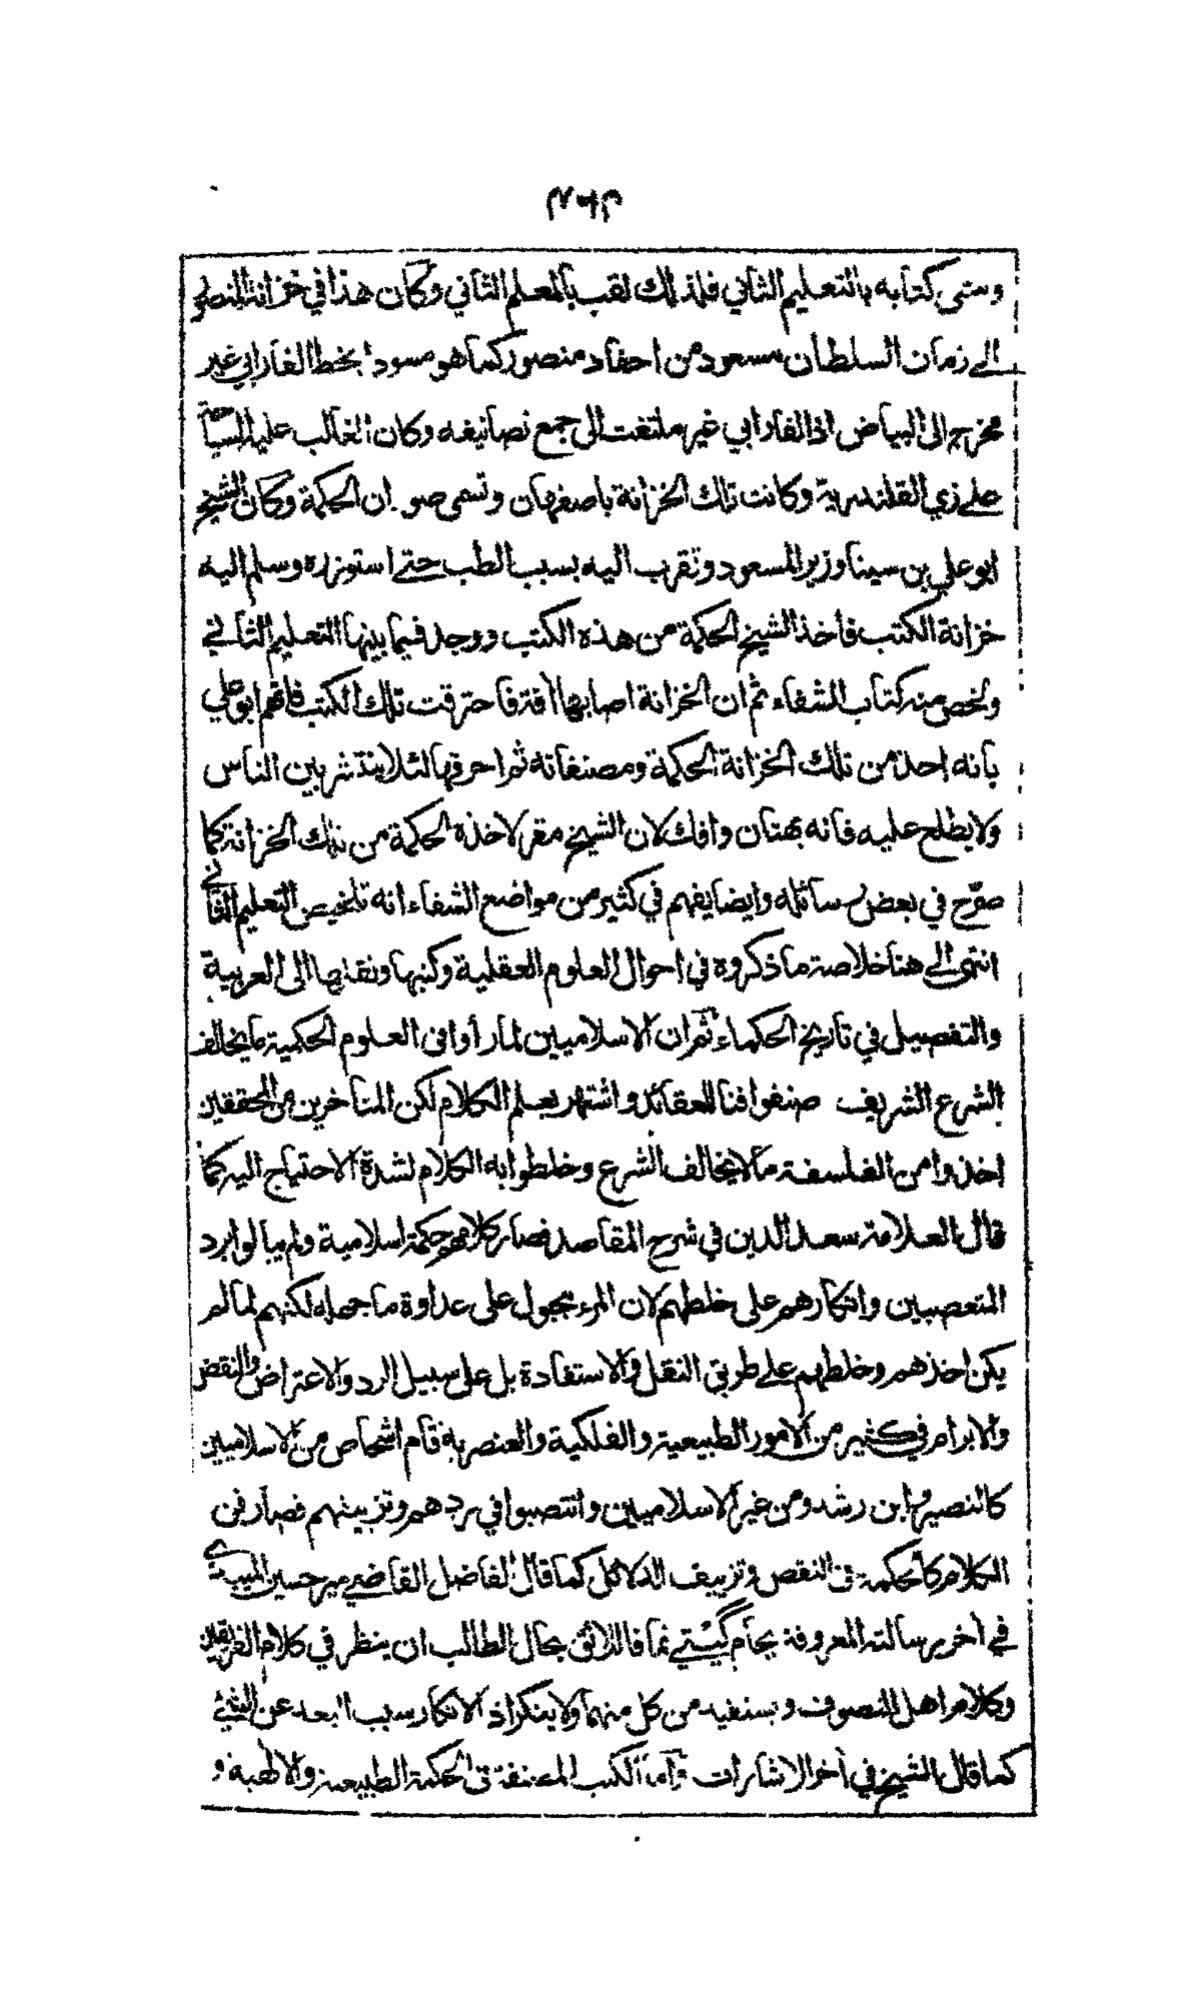 وسمى كتابه بالتعليم الثاني فلذلك لقب بالمعلم الثاني وكان هذا في خزانة المنصور
الى زمان السلطان مسعود من احفاد منصور كما هو مسودا بخط الفارابي غير
مخرج الى البياض اذ الفارابي غير ملتفت الى جمع تصانيفه وكان الغالب عليه السياحة
على زي القلندرية وكانت تلك الخزانة باصفهان وتسمى صوان الحكمة وكان الشيخ
ابو علي بن سينا وزيرا لمسعود وتقرب اليه بسبب الطب حتى استوزره وسلم اليه
خزانة الكتب فاخذ الشيخ الحكمة من هذه الكتب ووجد فيما بينها التعليم الثاني
ولخص منه كتاب الشفاء ثم ان الخزانة اصابها آفة فاحترقت تلك الكتب فاتهم ابو علي
بانه اخذ من تلك الخزانة الحكمة ومصنفاته ثم احرقها لئلا ينتشر بين الناس
ولا يطلع عليه فانه بهتان وافك لان الشيخ مقر لاخذه الحكمة من تلك الخزانة كما
صرّح في بعض رسائله وايضا يفهم في كثير من مواضع الشفاء انه تلخيص التعليم الثاني
انتهى الى هنا خلاصة ما ذكروه في احوال العلوم العقلية وكتبها ونقلها الى العربية
والتفصيل في تاريخ الحكماء ثم ان الاسلاميين لما رأوا في العلوم الحكمية ما يخالف
الشرع الشريف صنفوا فنا للعقائد واشتهر بعلم الكلام لكن المتأخرين من المحققين
اخذوا من الفلسفة ما لا يخالف الشرع وخلطوا به الكلام لشدة الاحتياج اليه كما
قال العلامة سعد الدين في شرح المقاصد فصار كلامهم حكمة اسلامية ولم يبالوا برد
المتعصبين وانكارهم على خلطهم لان المرء مجبول على عداوة ما جهله لكنهم لما لم
يكن اخذهم وخلطهم على طريق النقل والاستفادة بل على سبيل الرد والاعتراض والنقض
والابرام في كثير من الامور الطبيعية والفلكية والعنصرية قام اشخاص من الاسلاميين
كالنصير وابن رشد ومن غير الاسلاميين وانتصبوا في ردهم وتزييفهم فصار فن
الكلام كالحكمة في النقض وتزييف الدلائل كما قال الفاضل القاضي مير حسين الميبدي
في آخر رسالته المعروفة بجام گيتي نما فاللائق بحال الطالب ان ينظر في كلام الفريقين
وكلام اهل التصوف ويستفيد من كل منهما ولا ينكر اذ الانكار سبب البعد عن الشيء
كما قال الشيخ في آخر الاشارات وأما الكتب المصنفة في الحكمة الطبيعية والالهية و